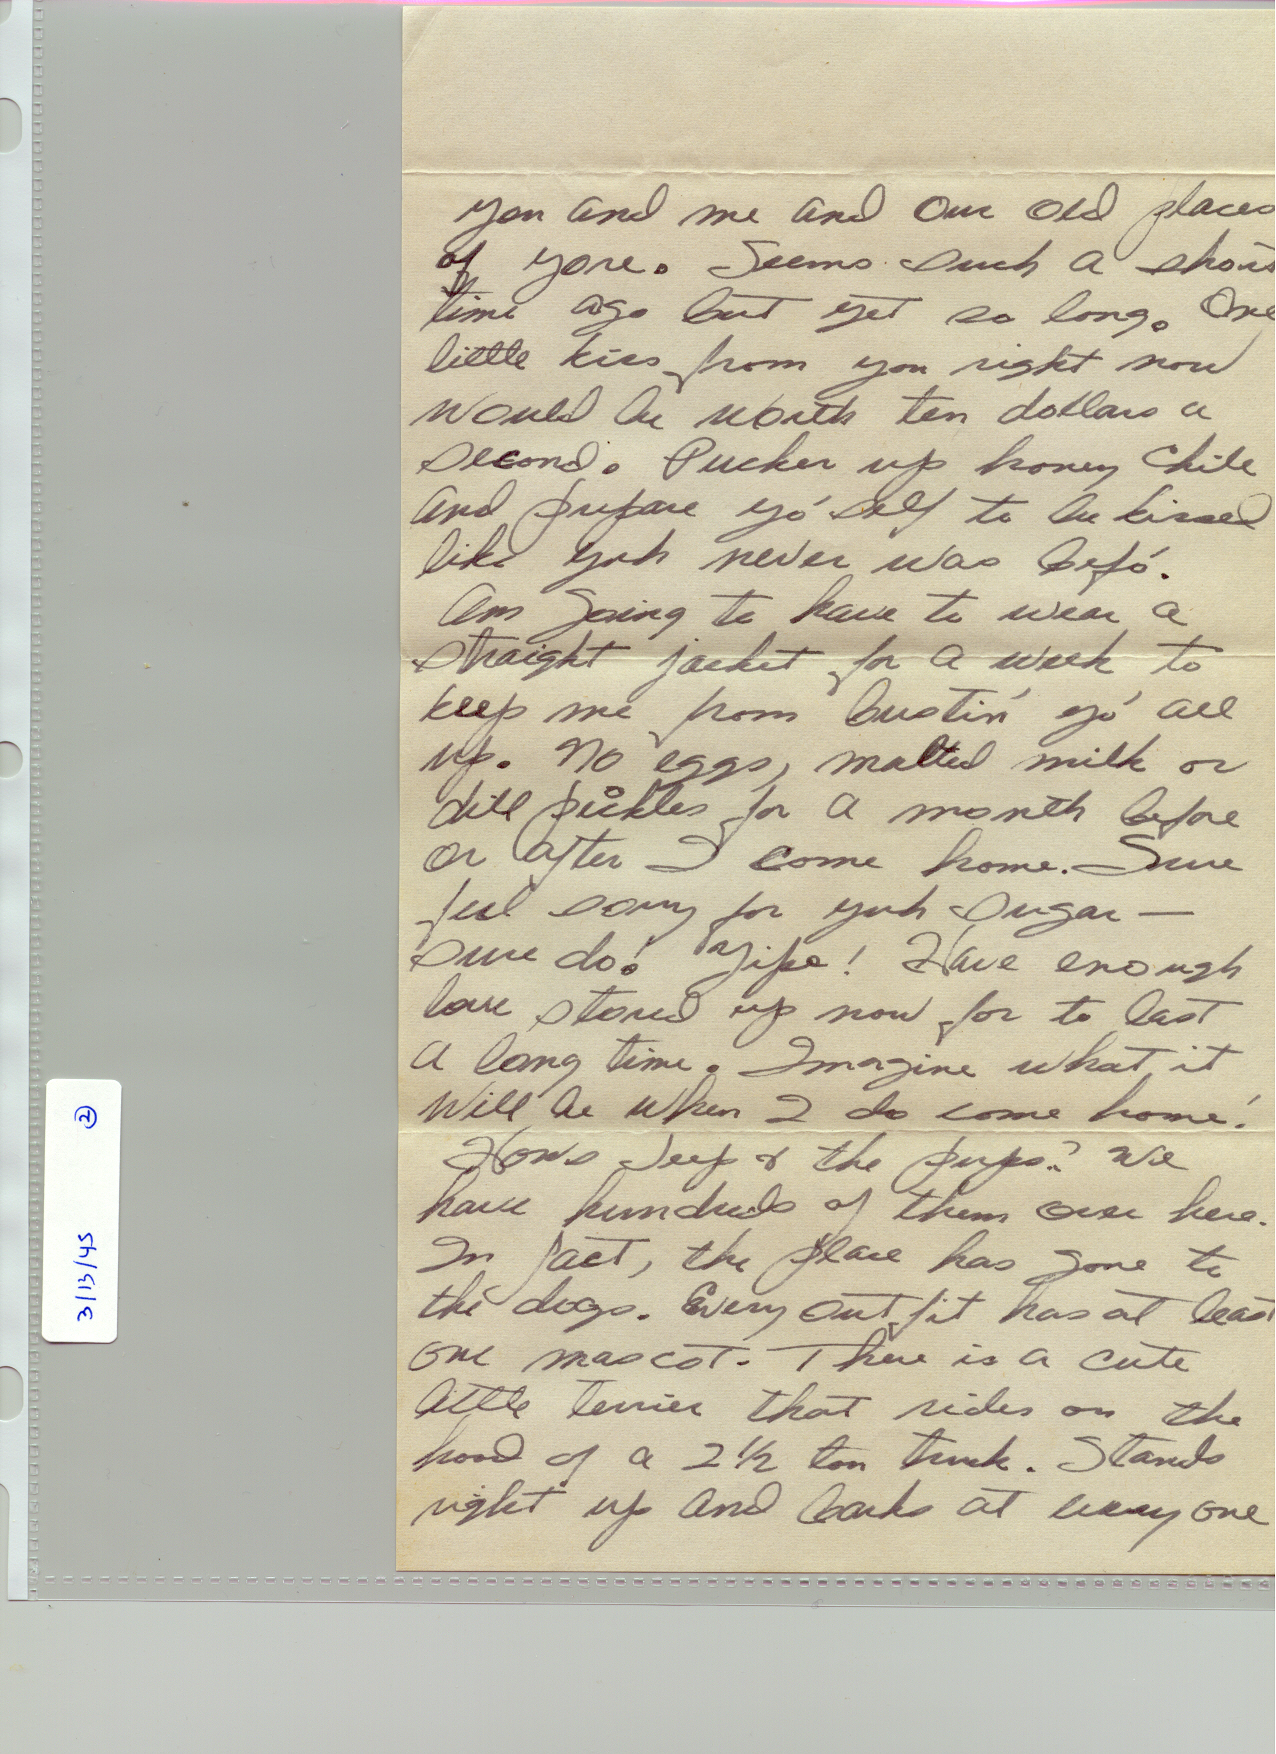 you and me and our old places
of yore. Seems such a short
time ago but yet so long. One
little kiss from you right now
would be worth ten dollars a
second. Pucker up honey chile
and prepare yo' self to be kissed
like yuh never was befo'.
Am going to have to wear a
straight jacket for a week to
keep me from bustin' yo' all
up. No eggs, malted milk or
dill pickles for a month before
or after I come home. Sure
feel sorry for yuh sugar —
sure do! Yipe! Have enough
love stored up now for to last
a long time. Imagine what it
will be when I do come home!
Hows Jeep & the pups? We
have hundreds of them over here.
In fact, the place has gone to
the dogs. Every outfit has at least
one mascot. There is a cute
little terrier that rides on the
hood of a 2 1/2 ton truck. Stands
right up and barks at every one
3/13/45 ②